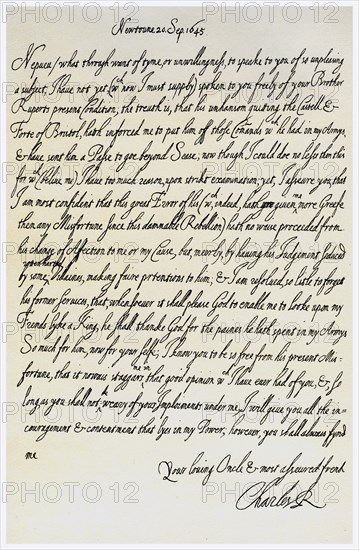 Newtoune 20. Sep. 1645
Nepueu, what through want of tyme, or unwillingness, to speake to you of so unpleasing
a subject, I have not yet (wch now I must supply) spoken to you freely of your Brother
Ruperts present Condition, the treuth is, that his unhansom quiting the Castell &
Forte of Bristol, hath inforced me to put him off those Comands wch he had in my Armys,
& have sent him a Passe to goe beyond Seas, now though I could doe no lesse then this
for wch (believe me) I have too much reason, upon strikt examination, yet, I assure you, that
I am most confident that this great Error of his (wch, indeed, hath given me more Griefe
then any Misfortune since this damnable Rebellion) hath no waies proceeded from
his change of Affection to me or my Cause, but, meerly, by having his Judgement seduced
by some Villaines, making faire pretentions to him, & I am resolved, so litle to forget
his former services, that, whensoever it shall please God to enable me to looke upon my
Frends lyke a King, he shall thanke God for the paines he hath spent in my Armys
So much for him, now for your selfe; I know you to be so free from his present Mis-
fortune, that it nowais staggers me in that good opinion wch I have ever had of you, & so
long as you shall not be weary of your Imployments under me, I will give you all the in-
couragement & contentment that lyes in my Power; however, you shall alwais fynd
me
Your loving Oncle & most asseured frend
Charles R
PHOTO 12